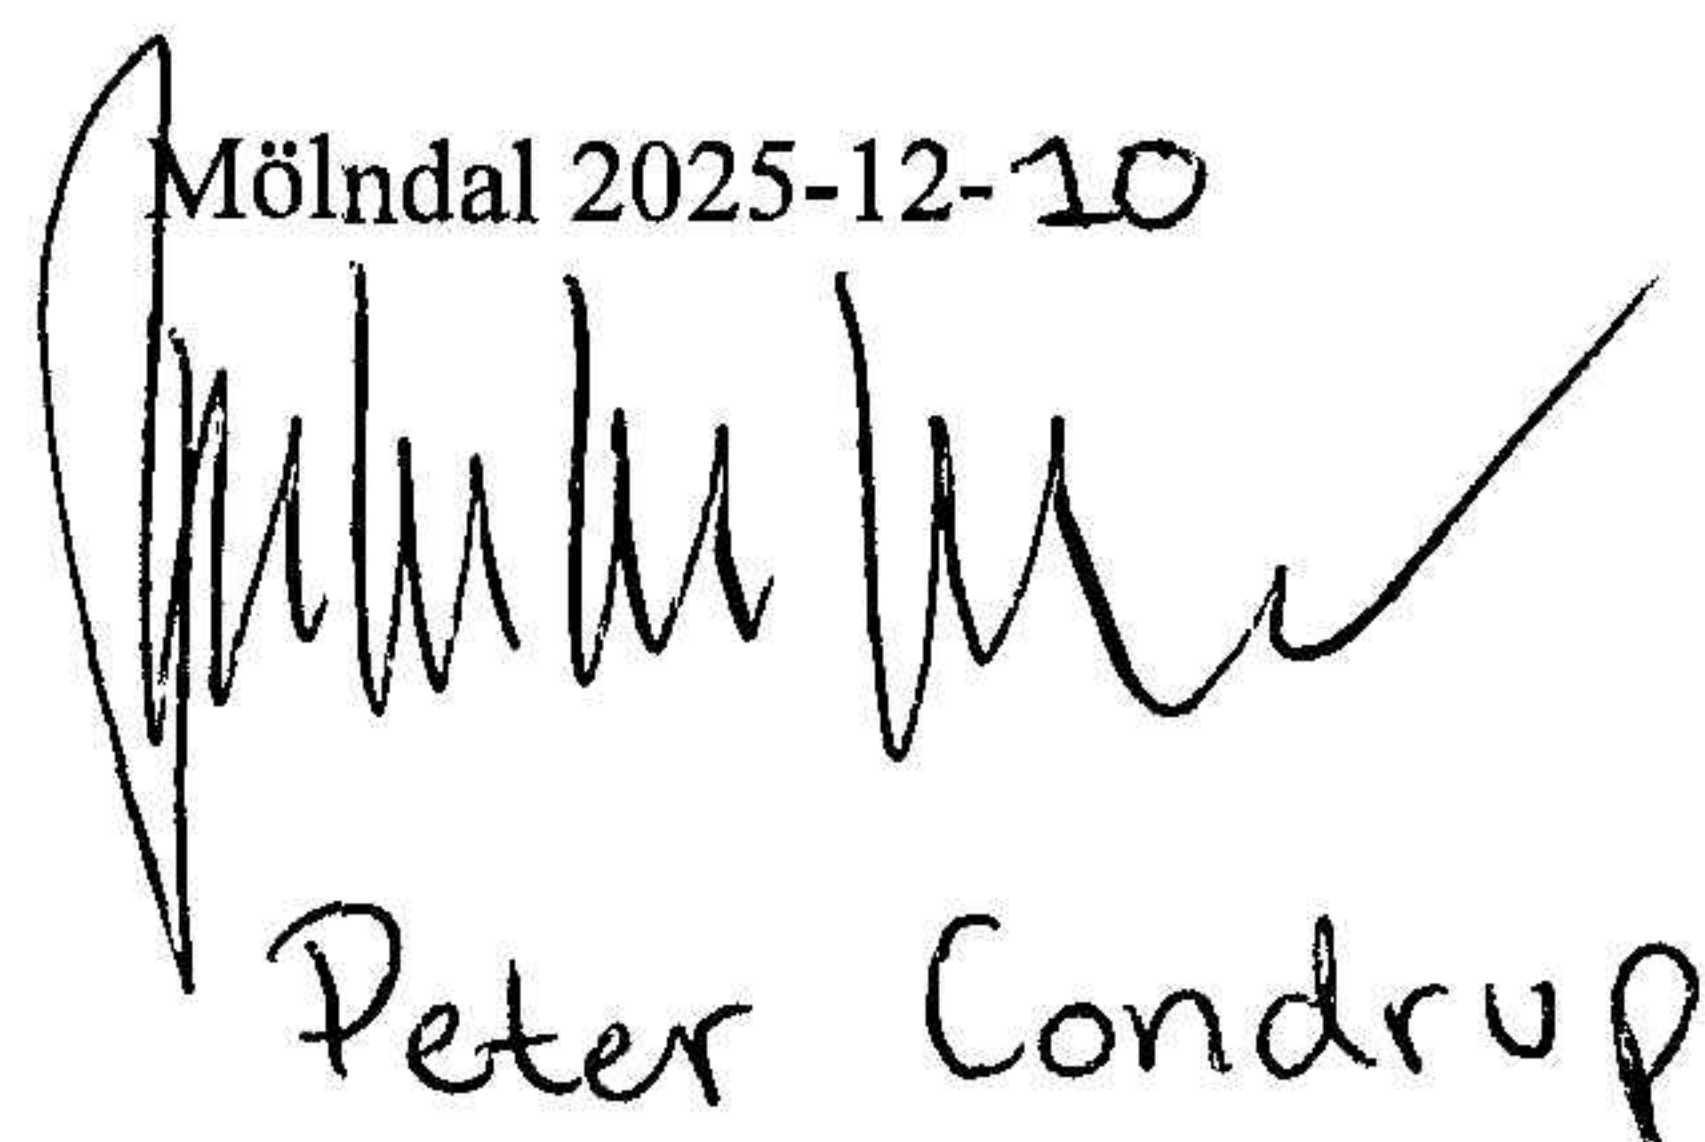 Mölndal 2025-12-10
Peter Condrup